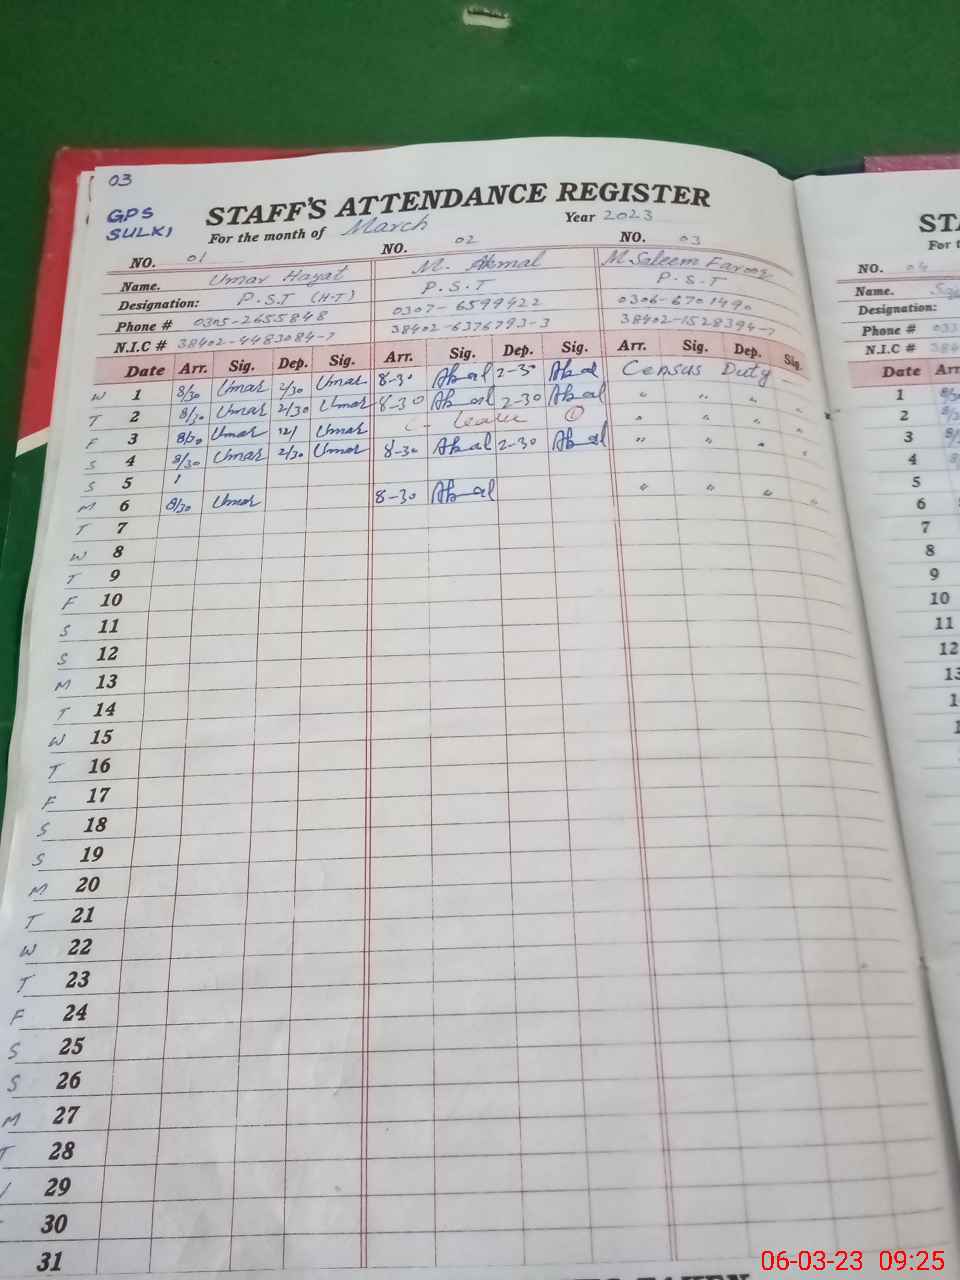 03
GPS
SULKI
STAFF'S ATTENDANCE REGISTER
For the month of March Year 2023
NO. 01 NO. 02 NO. 03
Name. Umar Hayat M. Akmal M Saleem Farooq
Designation: P.S.T (H.T) P.S.T P.S.T
Phone # 0305-2655848 0307-6599422 0306-6701490
N.I.C # 38402-4483084-7 38402-6376793-3 38402-1528394-7
Date Arr. Sig. Dep. Sig. Arr. Sig. Dep. Sig. Arr. Sig. Dep. Sig.
W 1 8/30 Umar 2/30 Umar 8-30 Akmal 2-30 Akmal Census Duty
T 2 8/30 Umar 2/30 Umar 8-30 Akmal 2-30 Akmal " " " "
F 3 8/30 Umar 12/ Umar C- Leave 1 " " " "
S 4 8/30 Umar 2/30 Umar 8-30 Akmal 2-30 Akmal " " " "
S 5
M 6 8/30 Umar 8-30 Akmal " " " "
T 7
W 8
T 9
F 10
S 11
S 12
M 13
T 14
W 15
T 16
F 17
S 18
S 19
M 20
T 21
W 22
T 23
F 24
S 25
S 26
M 27
T 28
29
30
31
NO. 04
Name.
Designation:
Phone # 033
N.I.C # 384
Date Arr
1
2
3
4
5
6
7
8
9
10
11
12
06-03-23 09:25